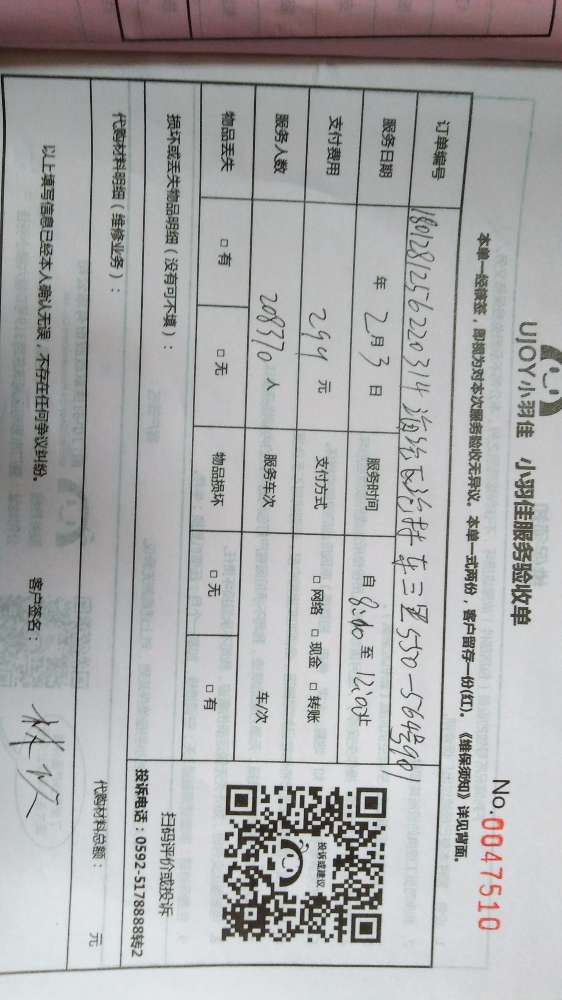 UJOY小羽佳 小羽佳服务验收单
No.0047510
本单一经核签，即视为对本次服务验收无异议。本单一式两份，客户留存一份(红)。《维保须知》详见背面。
订单编号 1801281256220314 东三里550-564号901
服务日期 年 2 月 3 日 服务时间 自 8:00 至 12:00止
支付费用 299 元 支付方式 □ 网络 □ 现金 □ 转账
服务人数 208370 人 服务车次 车/次
物品丢失 □ 有 □ 无 物品损坏 □ 无 □ 有
投诉或建议
扫码评价或投诉
投诉电话：0592-5178888转2
损坏或丢失物品明细（没有可不填）：
代购材料明细（维修业务）：
代购材料总额： 元
以上填写信息已经本人确认无误，不存在任何争议纠纷。
客户签名：